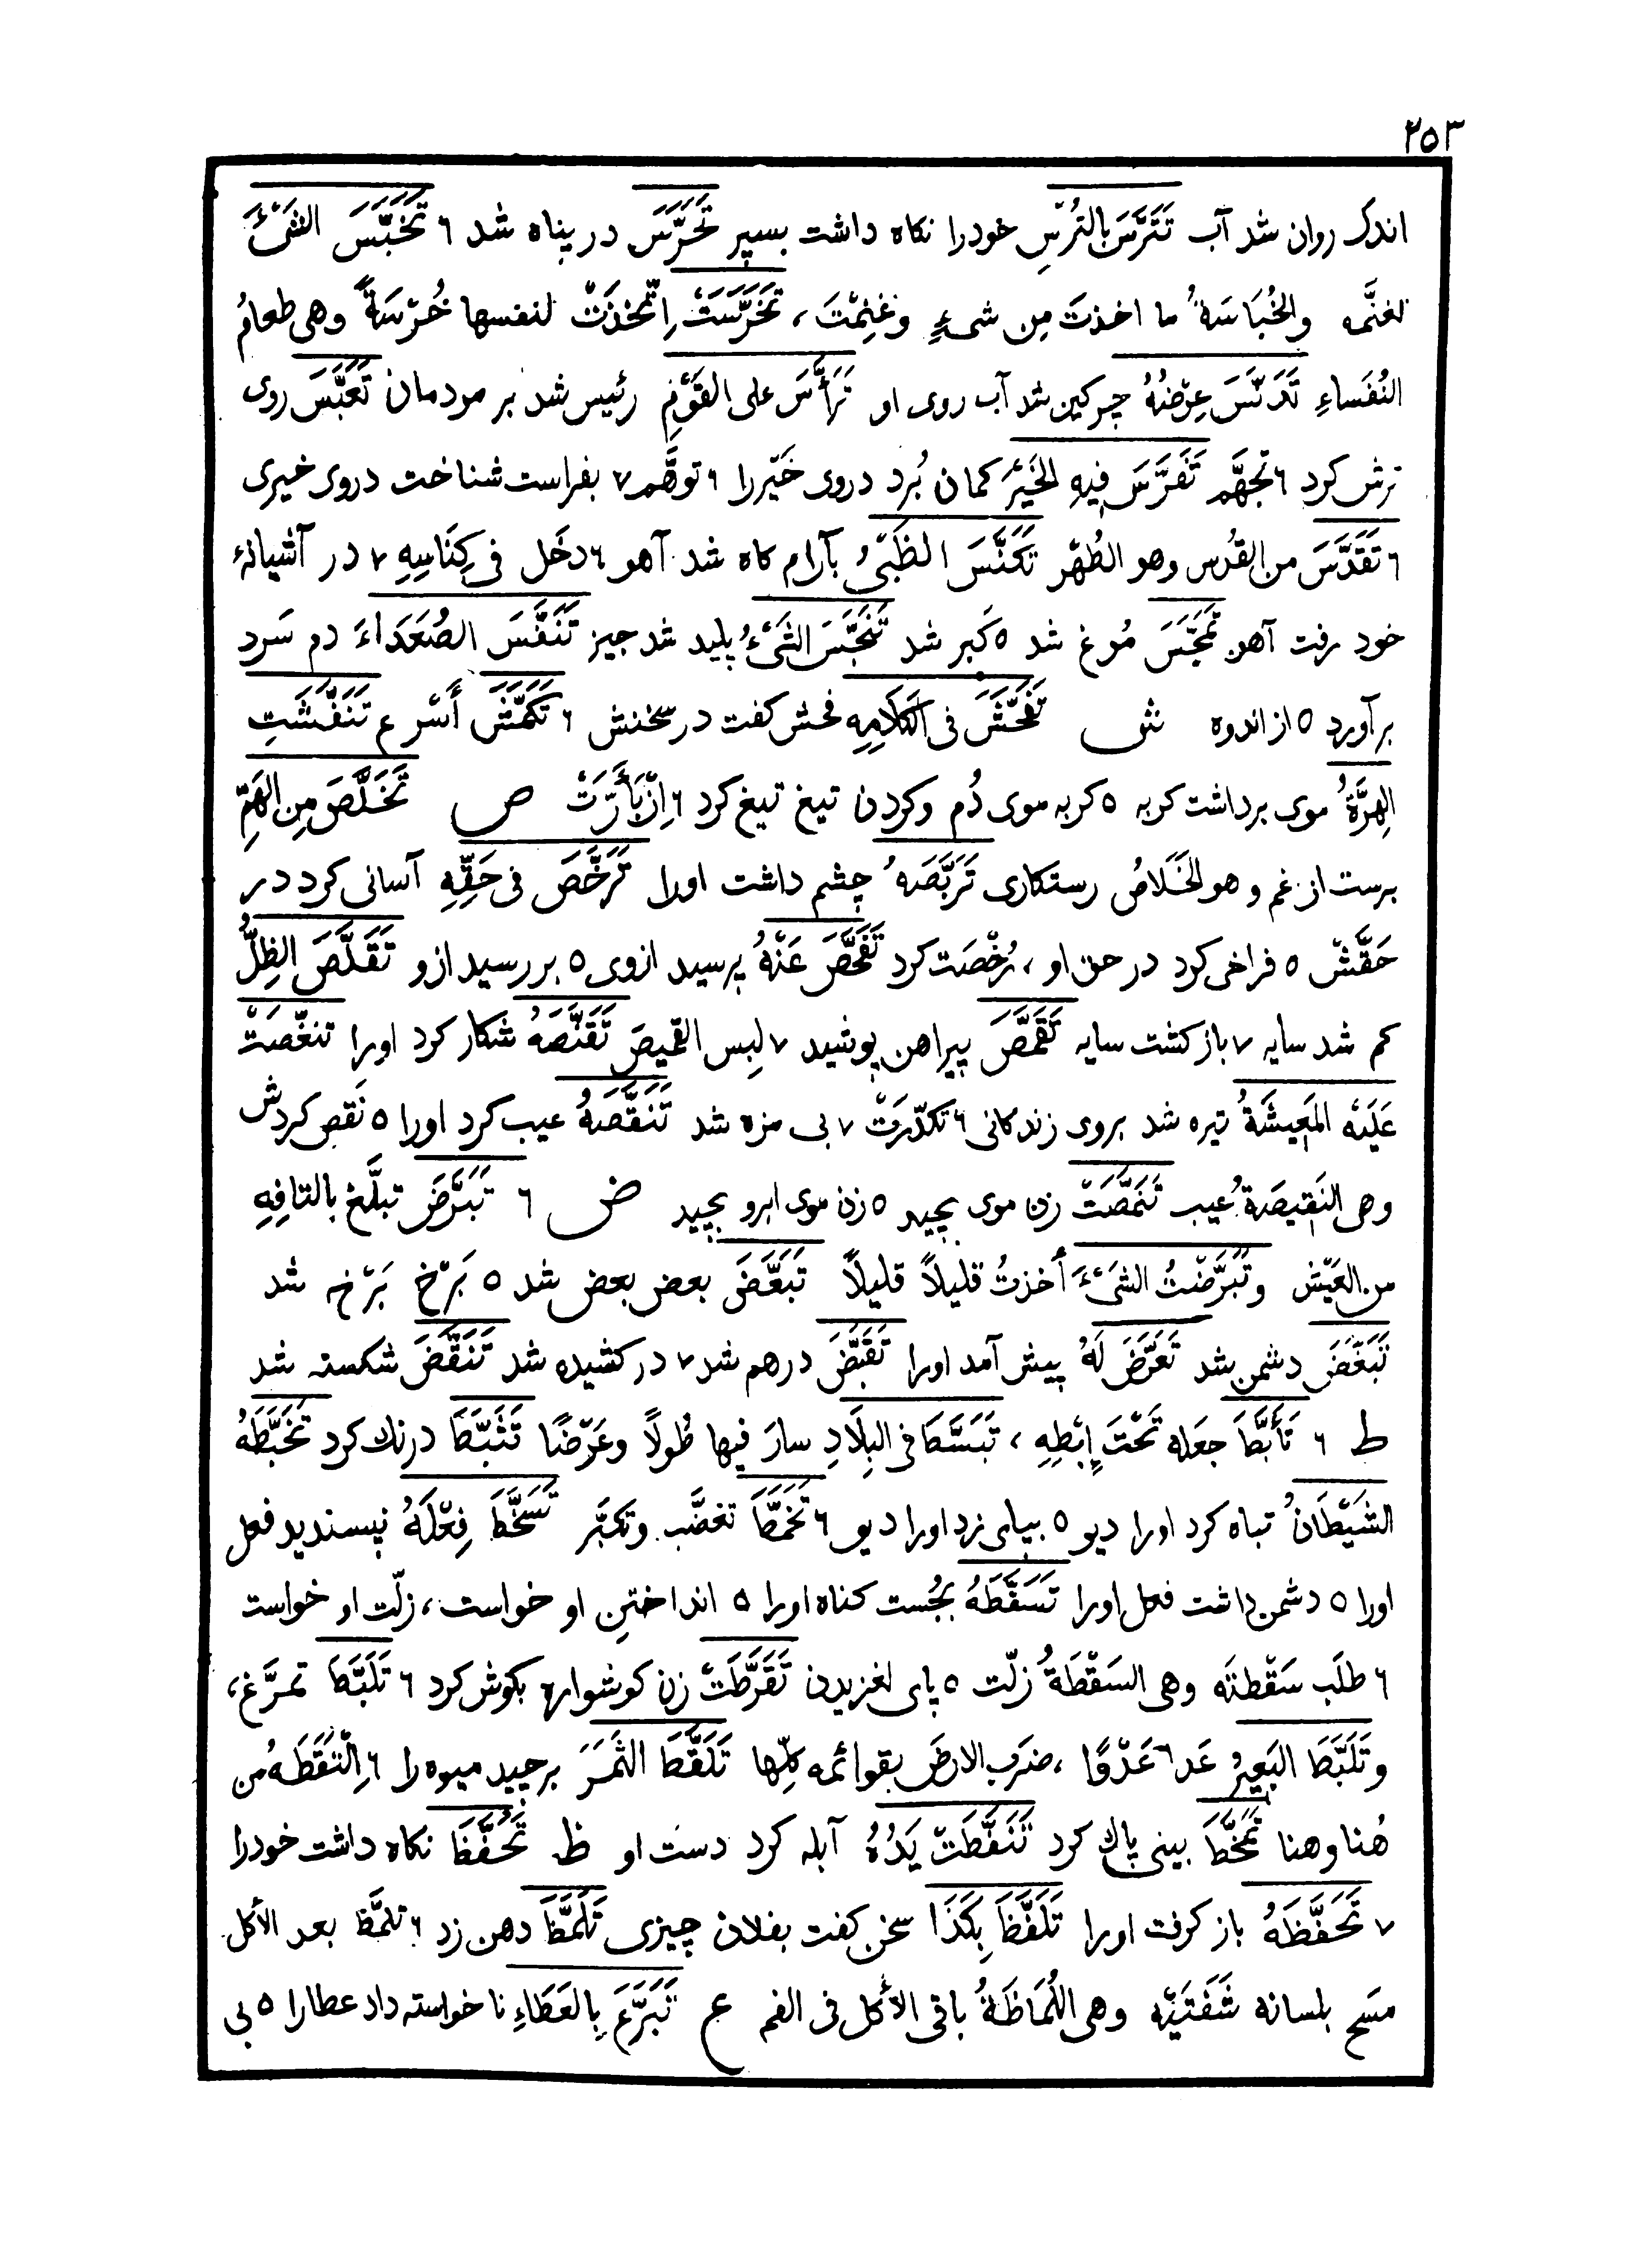 ٢٥٣
اندک روان شد آب تَتَرَّسَ بالتُرْسِ خودرا نکاه داشت بسپر تَحَرَّسَ در پناه شد ٦ تَخَبَّسَ الشَیْءَ
لغنَّمه والخُبَاسَةُ ما اخذتَ مِن شیءٍ وغنِمْتَ ، تَخَرَّسَتْ اِتّخذَتْ لنفسها خُرْسَةً وهی طعامُ
النُفَساءِ تَدَنَّسَ عِرْضُهُ چرکین شد آب روی او تَرَأَّسَ علی القَوْمِ رئیس شد بر مردمان تَعَبَّسَ روی
ترش کرد ٦ تَجهَّم تَفَرَّسَ فِیهِ الخَیْرَ کمان بُرد دروی خَیْررا ٦ توهَّم ٧ بفراست شناخت دروی خیری
٦ تَقَدَّسَ من القُدْس وهو الطُهْر تَکَنَّسَ الظَبْیُ بآرام کاه شد آهو ٦ دخَل فی کِنَاسِهِ ٧ در آشیانهٔ
خود رفت آهو تَمَجَّسَ مُوغ شد ٥ کَبر شد تَنَجَّسَ الشَیْءُ پلید شد جیز تَنَفَّسَ الصُعَدَاءَ دم سَرد
بر آورد ٥ از اندوه ش تَفَحَّشَ فی الکَلَامِهِ فحش کفت در سخنش ٦ تَکَمَّشَ أَسْرع تَنَفَّشَتِ
الهِرَّةُ موی برداشت کربه ٥ کربه موی دُم وکردن تیغ تیغ کرد ٦ اِزْبَأَرَّتْ ص تَخَلَّصَ مِن الهَمِّ
برست از غم وهو الخَلَاصُ رستکاری تَرَبَّصَهُ چشم داشت اورا تَرَخَّصَ فی حَقِّهِ آسانی کرد در
حَقَّشْ ٥ فراخی کرد در حق او ، رُخْصَت کرد تَفَحَّصَ عَنْهُ پرسید ازوی ٥ بررسید ازو تَقَلَّصَ الظِلُّ
کم شد سایه ٧ باز کشت سایه تَقَمَّصَ پیراهن پوشید ٧ لبِس القمیصَ تَقَنَّصَهُ شکار کرد اورا تنغّصَتْ
عَلَیْهِ المَعِیشَةُ تیره شد بروی زندکانی ٦ تکدّرَتْ ٧ بی مزه شد تَنَقَّصَهُ عیب کرد اورا ٥ نَقص کردش
وهی النَقِیصَةُ عیب تَنَمَّصَتْ زن موی بچید ٥ زن موی ابرو بچید ض ٦ تَبَرَّضَ تبلَّغ بالتافِهِ
من العَیْش وتَبَرَّضْتُ الشَیْءَ أخذتُ قلیلاً قلیلاً تَبَعَّضَ بعض بعض شد ٥ بَرْخ بَرْخ شد
تَبَغَّضَ دشمن شد تَعَرَّضَ لَهُ پیش آمد اورا تَقَبَّضَ درهم شد ٧ در کشیده شد تَنَقَّضَ شکسته شد
ط ٦ تَأَبَّطَ جعَله تَحْتَ إِبْطِهِ ، تَبَسَّطَ فی البِلَادِ سارَ فیها طُولاً وعَرْضًا تَثَبَّطَ درنك کرد تَخَبَّطَهُ
الشَیْطَانُ تباه کرد اورا دیو ٥ بپای زد اورا دیو ٦ تَخَمَّطَ تغضَّب وتکبَّر تَسَخَّطَ فِعْلَهُ نپسندید فعل
اورا ٥ دشمن داشت فعل اورا تَسَقَّطَهُ بجُست کناه اورا ٥ انداختنِ او خواست ، زلّت او خواست
٦ طلَب سَقْطتَه وهی السَقْطَةُ زلّت ٥ پای لغزیدن تَقَرَّطَتْ زن کوشواره بکوش کرد ٦ تَلَبَّطَ تمرَّغ ،
وتَلَبَّطَ البَعِیرُ عَدا عَدْوًا ، ضرَب الارضَ بقوائمه کلّها تَلَقَّطَ الثَمَرَ برچید میوه را ٦ اِلْتَقَطَهُ من
هُنا وهنا تَمَخَّطَ بینی پاك کرد تَنَفَّطَتْ یَدُهُ آبله کرد دست او ظ تَحَفَّظَ نکاه داشت خودرا
٧ تَحَفَّظَهُ باز کرفت اورا تَلَفَّظَ بِکَذَا سخن کفت بفلان چیزی تَلَمَّظَ دهن زد ٦ تلمَّظ بعد الأکل
مسَح بلسانه شَفَتَیْه وهی اللُمَاظَةُ باقی الأکل فی الفم ع تَبَرَّعَ بِالعَطَاءِ نا خواسته داد عطارا ٥ بی